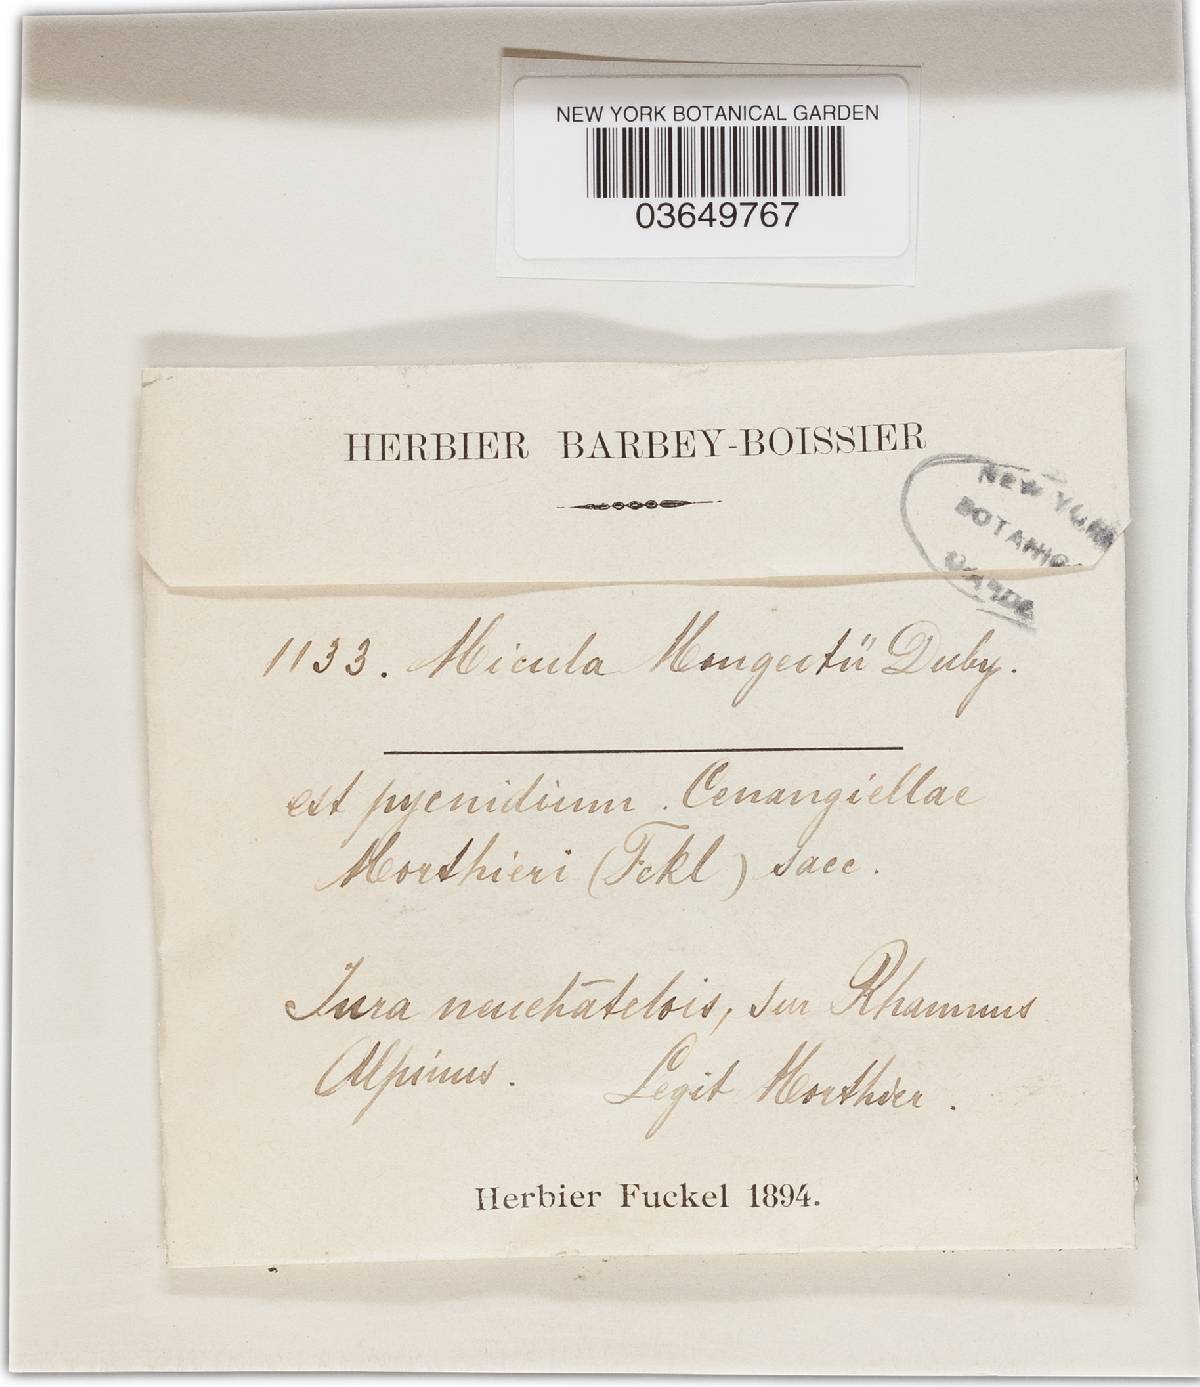 NEW YORK BOTANICAL GARDEN
03649767
HERBIER BARBEY-BOISSIER
NEW YORK
BOTANIC
GARDE
1133. Micula Mougeotii Duby.
est pycnidium. Cenangiellae
Morthieri (Fckl) Sacc.
Jura neuchâtelois, sur Rhamnus
Alpinus. Legit Morthier.
Herbier Fuckel 1894.